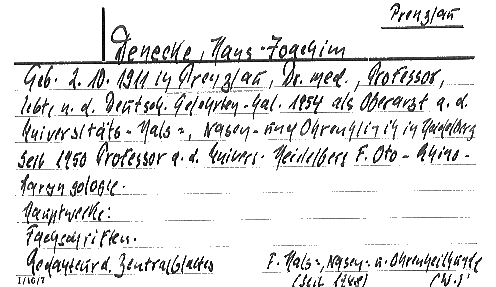 Prenzlau
Denecke, Hans-Joachim
Geb. 2. 10. 1911 in Prenzlau, Dr. med., Professor,
lebt n. d. Deutsch. Gelehrten-Kal. 1954 als Oberarzt a. d.
Universitäts-Hals-, Nasen- und Ohrenklinik in Heidelberg
Seit 1950 Professor a. d. Univers. Heidelberg f. Oto-Rhino-
Laryngologie.
Hauptwerke:
Fachschriften.
Redakteur d. Zentralblattes f. Hals-, Nasen- u. Ohrenheilkunde
(Seit 1948)